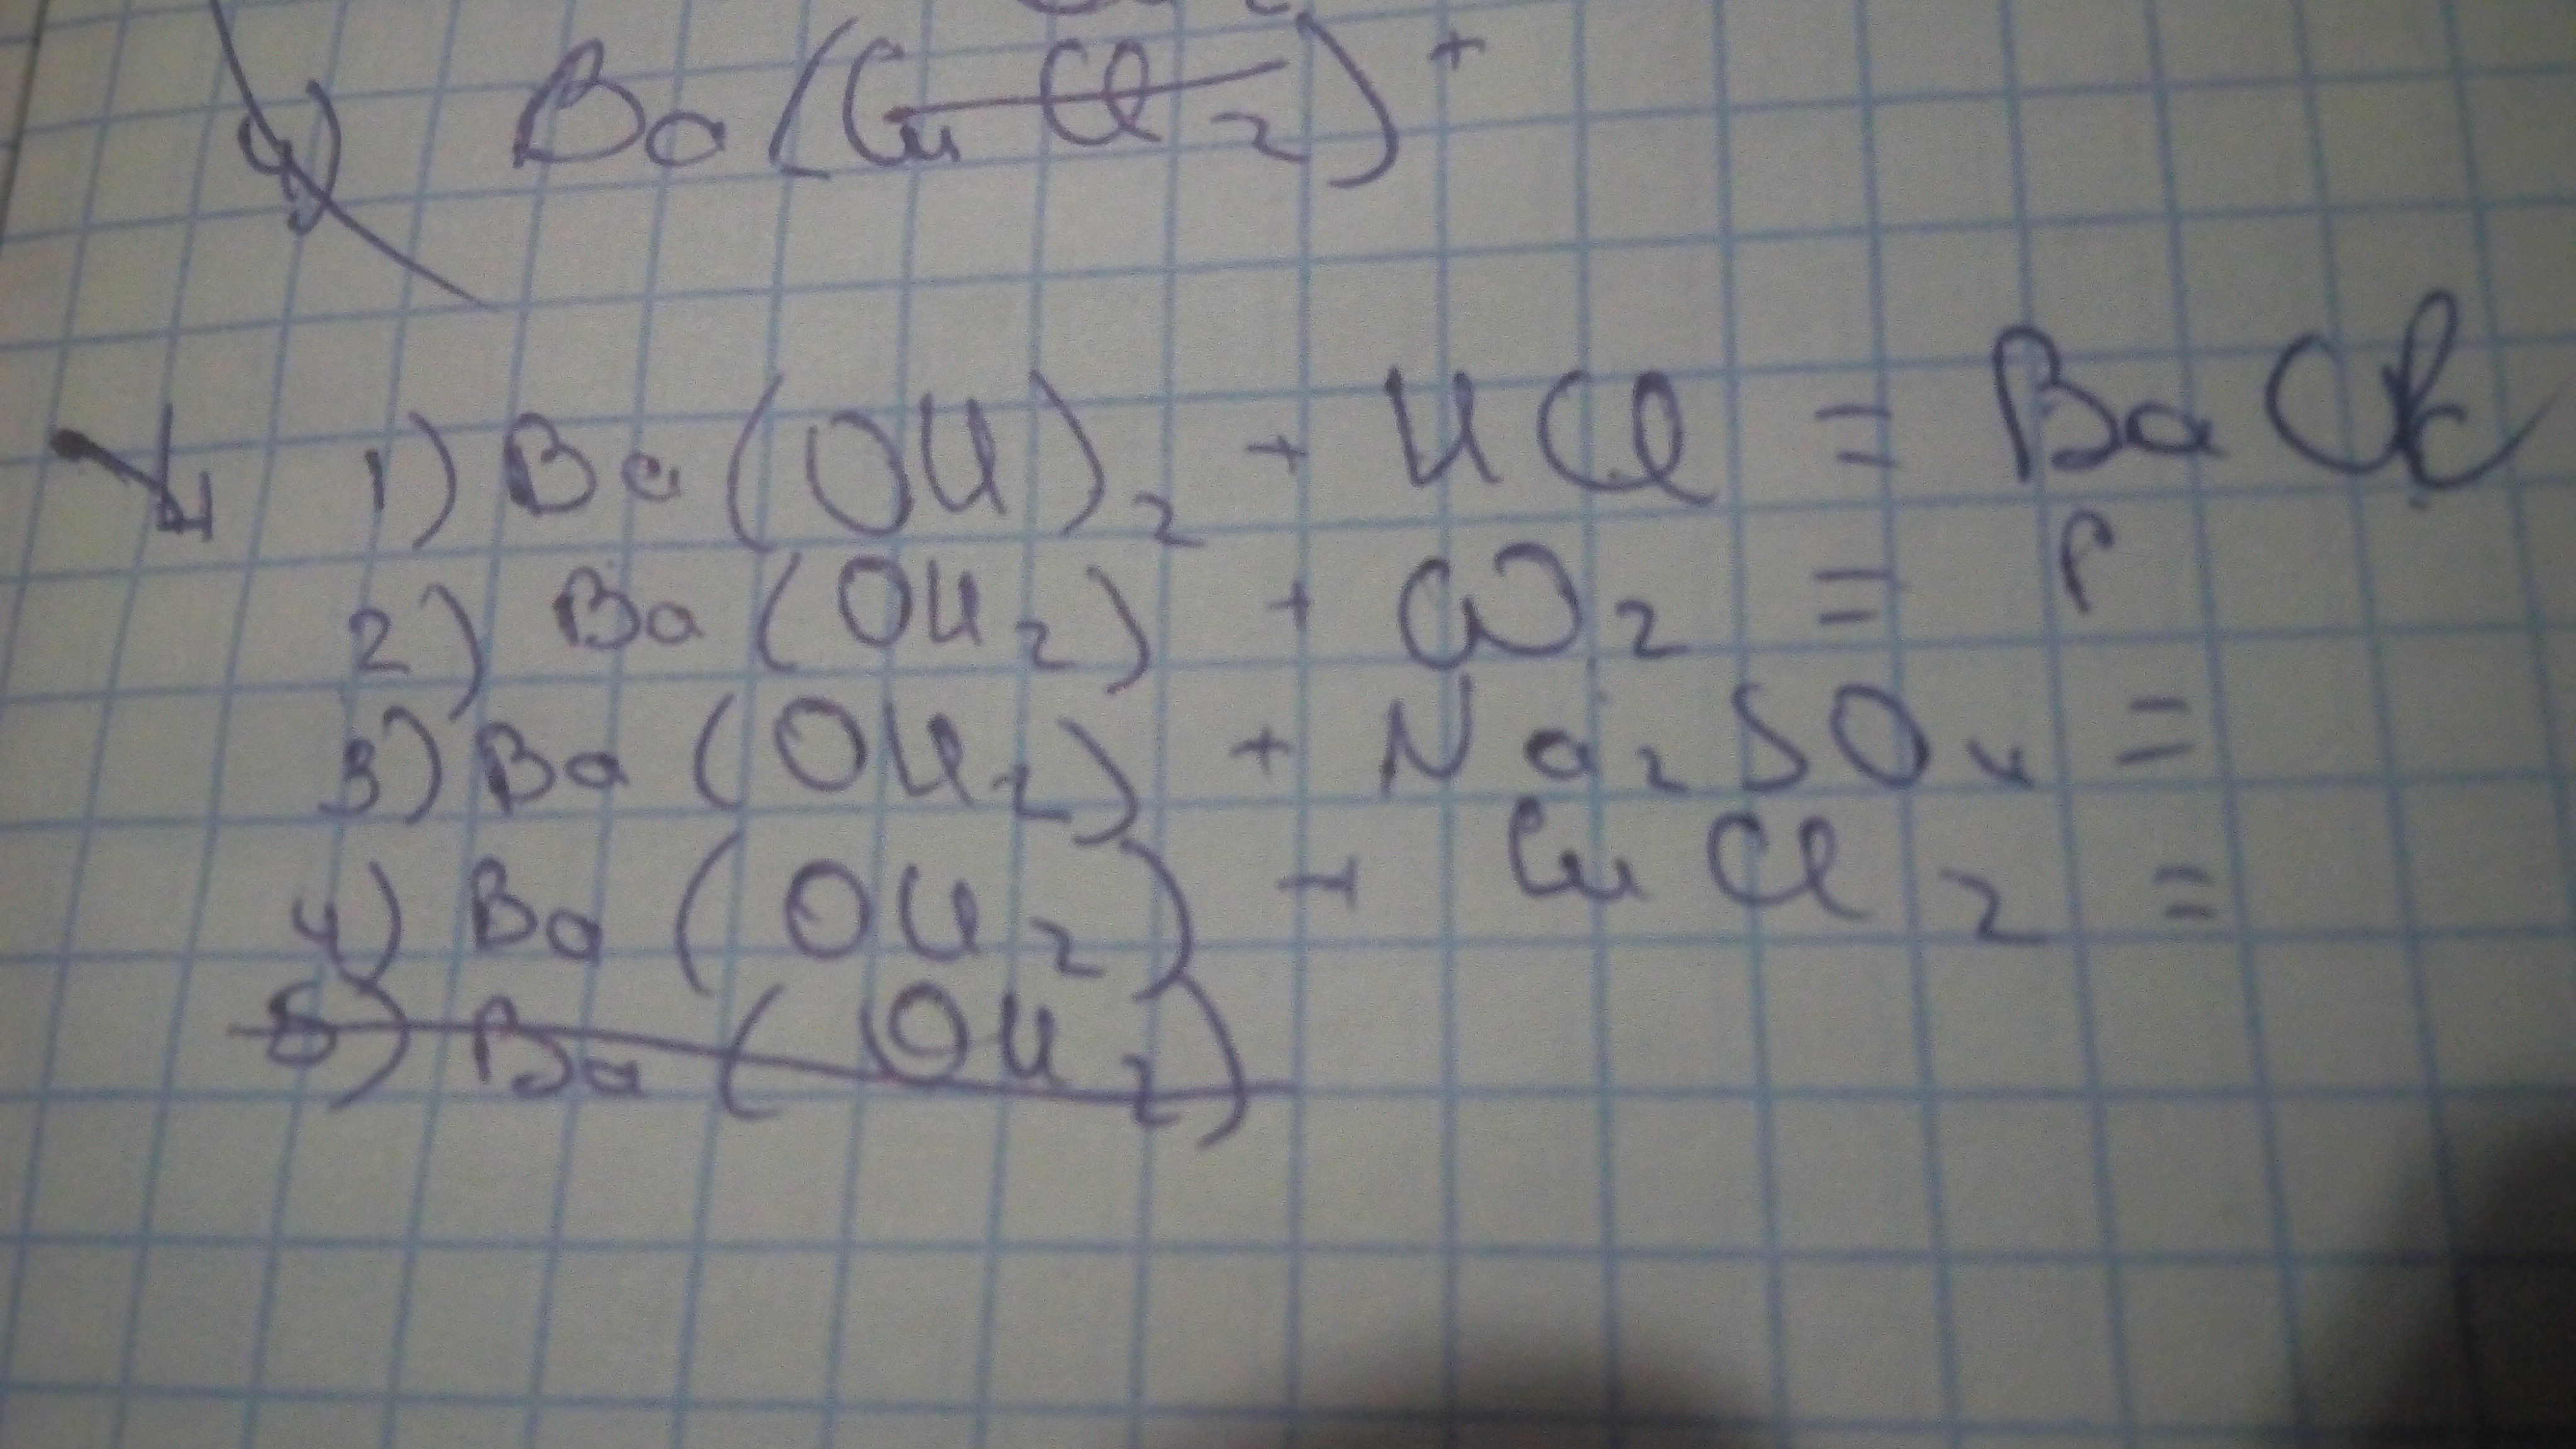 4) Ba(Cu Cl 2) +
1) Ba(OH)2 + HCl = Ba Cl
2) Ba(OH2) + CO2 =
3) Ba(OH2) + Na2SO4 =
4) Ba(OH2) + CuCl2 =
5) Ba(OH2)